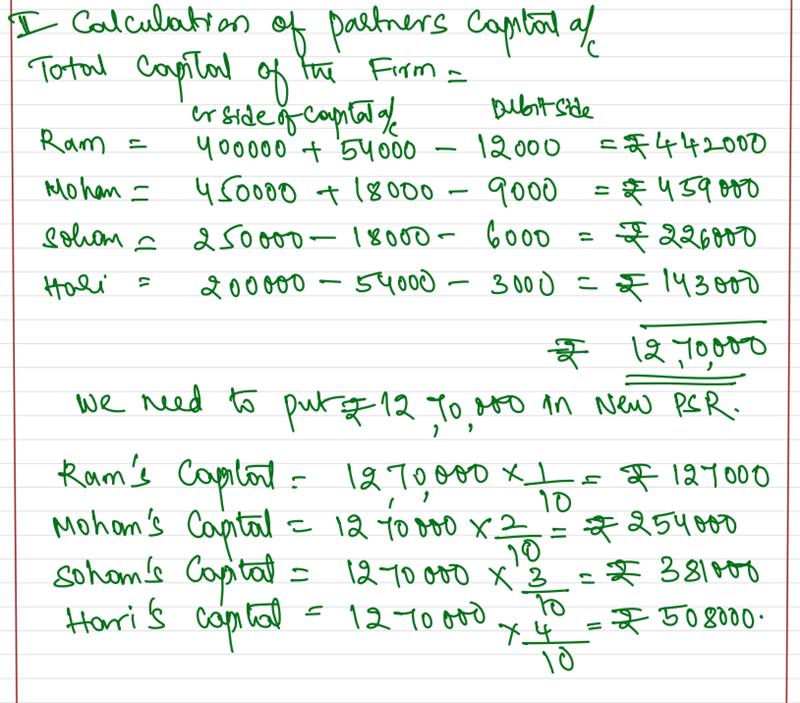 I Calculation of partners Capital a/c
Total Capital of the Firm =
cr side of capital a/c Debit side
Ram = 400000 + 54000 - 12000 = ₹442000
Mohan = 450000 + 18000 - 9000 = ₹459000
Sohan = 250000 - 18000 - 6000 = ₹226000
Hari = 200000 - 54000 - 3000 = ₹143000
₹ 12,70,000
We need to put ₹12,70,000 in New PSR.
Ram's Capital = 12,70,000 × 1/10 = ₹127000
Mohan's Capital = 1270000 × 2/10 = ₹254000
Sohan's Capital = 1270000 × 3/10 = ₹381000
Harri's capital = 1270000 × 4/10 = ₹508000.